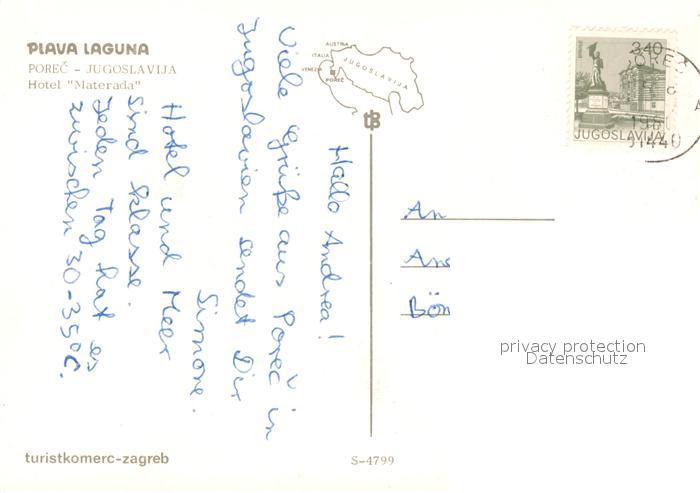 PLAVA LAGUNA
POREČ - JUGOSLAVIJA
Hotel "Materada"
AUSTRIA
ITALIA
VENEZIA
POREČ
JUGOSLAVIJA
tB
3,40
JUGOSLAVIJA
51440
Hallo Andrea!
Viele Grüße aus Poreč in
Jugoslavien sendet Dir
Simone.
Hotel und Meer
sind klasse.
Jeden Tag hat es
zwischen 30-35°C.
An
An
Bön
privacy protection
Datenschutz
turistkomerc-zagreb
S-4799